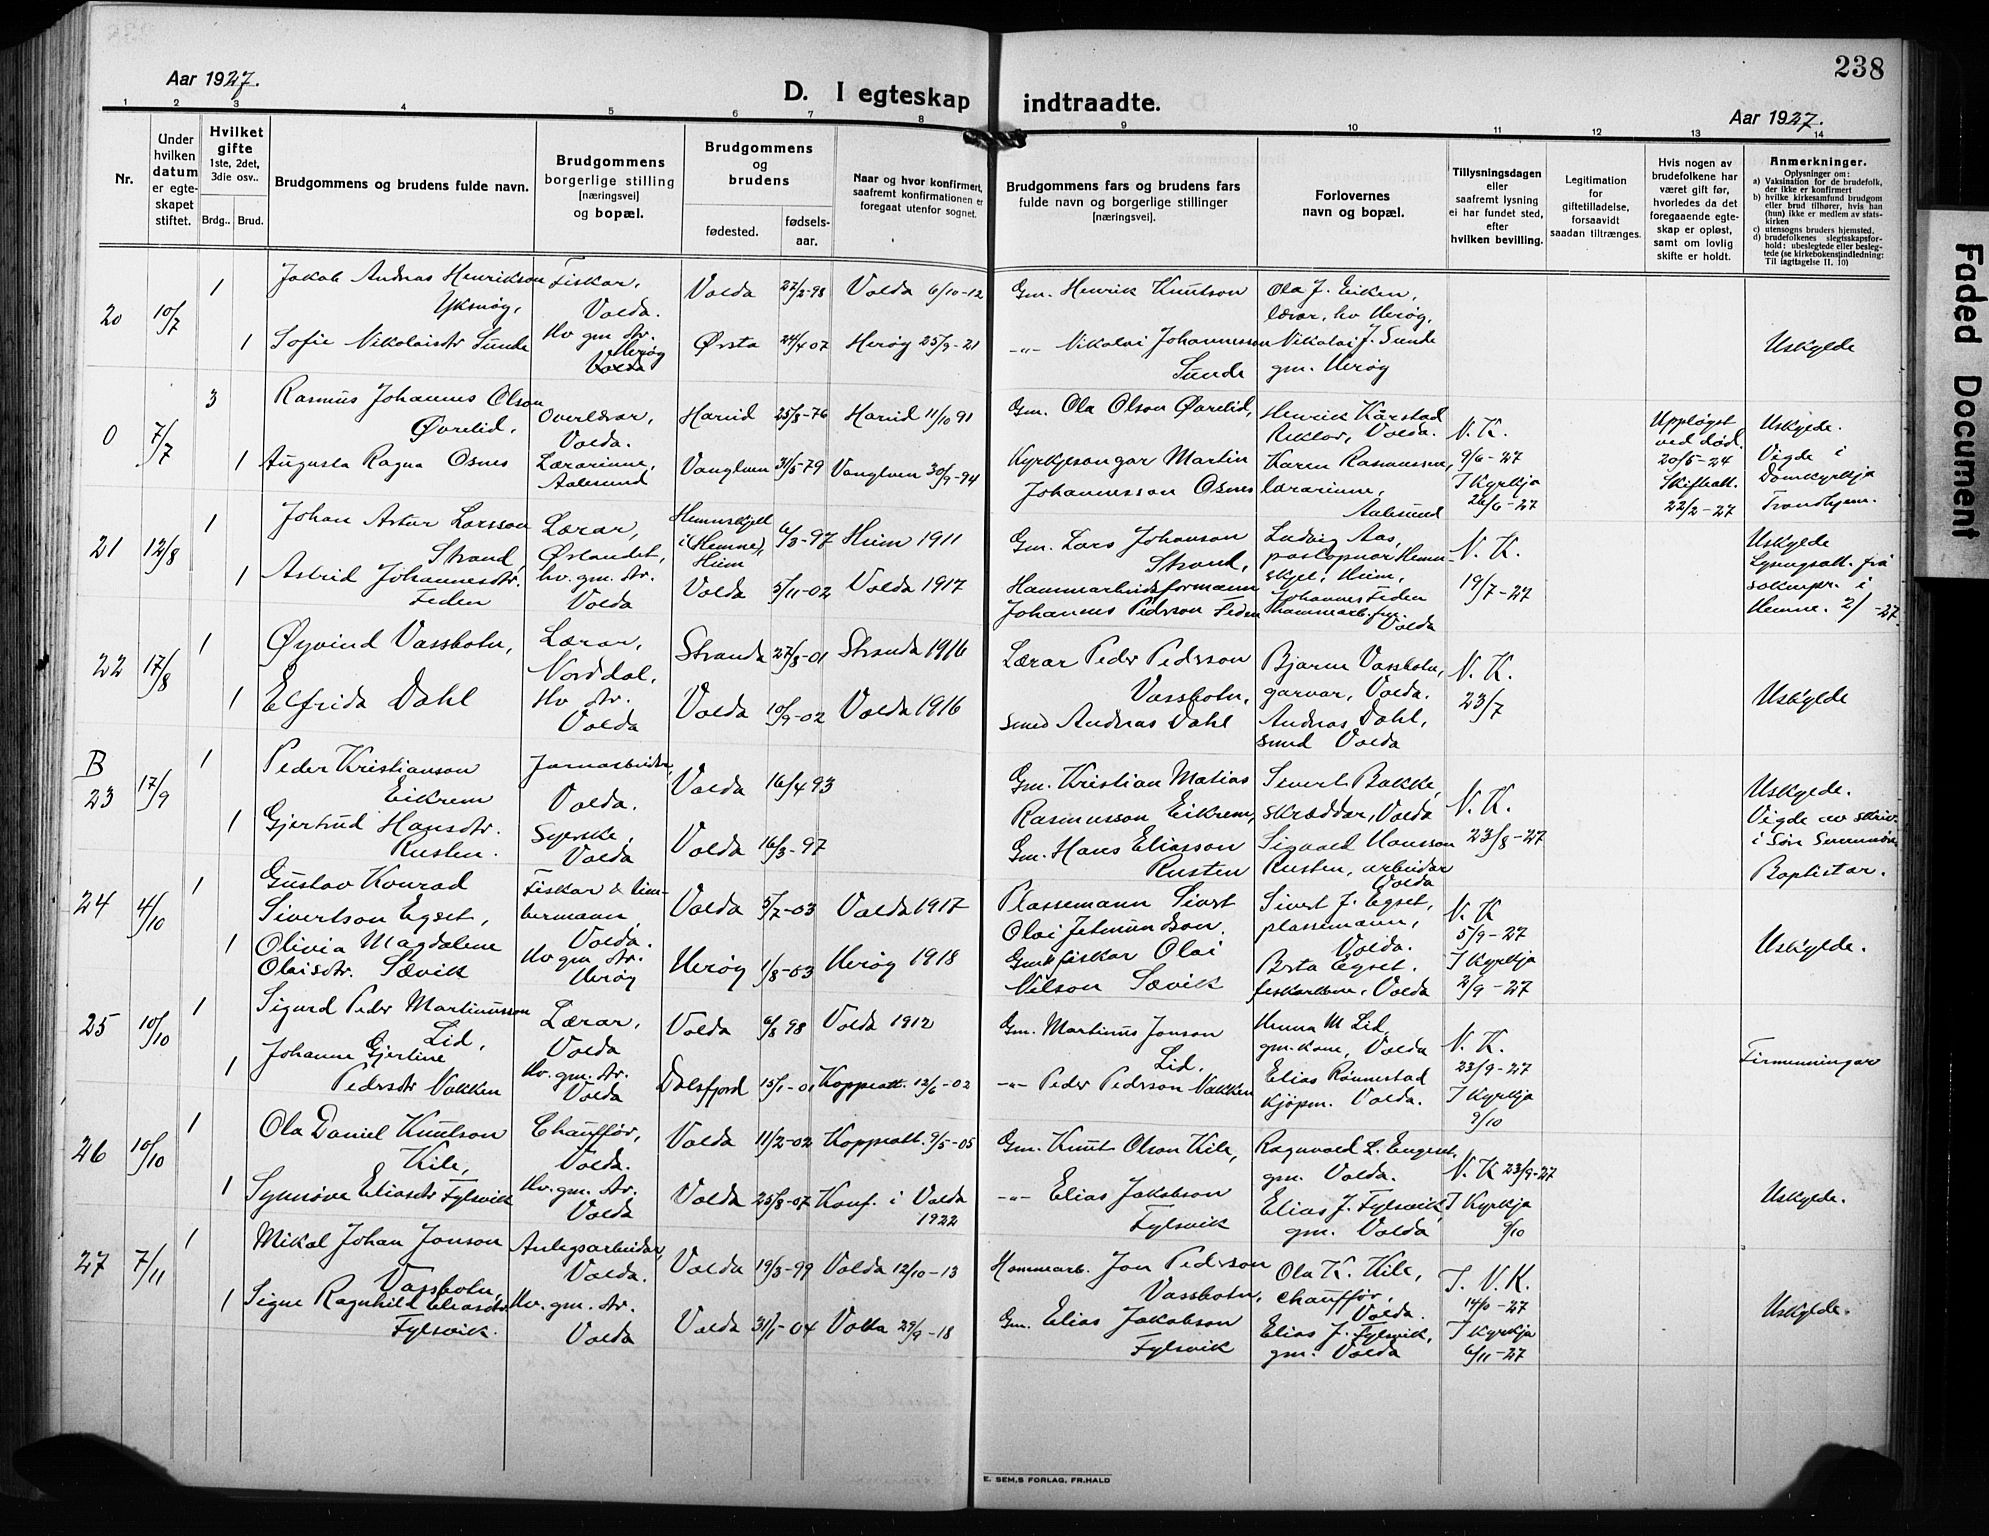 238
Aar 1927.
D. I egteskap indtraadte.
Aar 1927.
1 2 3 4 5 6 7 8 9 10 11 12 13 14
Nr.
Under hvilken datum er egteskapet stiftet.
Hvilket gifte 1ste, 2det, 3die osv..
Brdg.. Brud.
Brudgommens og brudens fulde navn.
Brudgommens borgerlige stilling [næringsvei] og bopæl.
Brudgommens og brudens
fødested.
fødselsaar.
Naar og hvor konfirmert, saafremt konfirmationen er foregaat utenfor sognet.
Brudgommens fars og brudens fars fulde navn og borgerlige stillinger [næringsvei].
Forlovernes navn og bopæl.
Tillysningsdagen eller saafremt lysning ei har fundet sted, efter hvilken bevilling.
Legitimation for giftetilladelse, forsaavidt saadan tiltrænges.
Hvis nogen av brudefolkene har været gift før, hvorledes da det foregaaende egteskap er opløst, samt om lovlig skifte er holdt.
Anmerkninger.
Oplysninger om:
a) Vaksination for de brudefolk, der ikke er konfirmert
b) hvilke kirkesamfund brudgom eller brud tilhører, hvis han (hun) ikke er medlem av statskirken
c) utensogns bruders hjemsted.
d) brudefolkenes slegtsskapsforhold: ubeslegtede eller beslegtede (se kirkebokensindledning: Til iagttagelse II. 10)
20 10/7 1 Jakob Andreas Henrikson Yksnøy, Fiskar, Volda. Volda 27/2-98 Volda 6/10-12 Gm. Henrik Knutson Ola J. Eiken, lærar, hv Herøy,
1 Sofie Nikolaisdtr Sunde Hv gm dtr. Herøy Volda Ørsta 24/4 07 Herøy 25/9-21 -"- Nikolai Johannesson Sunde Nikolai J. Sunde gm. Herøy Uskylde
0 7/7 3 Rasmus Johannes Olson Øvrelid, Overlærar, Volda. Hareid 25/8-76 Hareid 11/10 91 Gm. Ola Olson Øvrelid, Henrik Kårstad Rektor, Volda. N. K. 9/6-27 Uppløyst ved død 20/5-24 Uskylde.
1 Augusta Ragna Osnes Lærarinne, Aalesund Vanylven 31/5-79 Vanylven 30/9-94 Kyrkjesongar Martin Johannesson Osnes Karen Rasmussen, lærarinne, Aalesund I Kyrkja 26/6-27 Skifteatt. 22/2-27 Vigde i Domkyrkja Trondhjem.
21 12/8 1 Johan Artur Larsson Strand, Lærar, Ørlandet, Hemnskjell i (Hemne), Heim 6/3-97 Heim 1911 Gm. Lars Johanson Strand, Ludvig Aas, postopnar, Hemnskjel, Heim, N. K. 19/7-27 Uskylde
1 Astrid Johannesdtr. Feden hv. gm. dtr. Volda Volda 5/11-02 Volda 1917 Hammarbeidsformann Johannes Pederson Feden Johannes Feden hammarb.fm. Volda Lysingsatt. frå soknepr. i Hemne. 2/ -27.
22 17/8 1 Øyvind Vassbotn, Lærar, Norddal, Stranda 27/8-01 Stranda 1916 Lærar Peder Pederson Vassbotn, Bjarne Vassbotn, garvar, Volda. N. K. 23/7
1 Elfrida Dahl Hv dtr. Volda Volda 10/9-02 Volda 1916 Smed Andreas Dahl Andreas Dahl, smed Volda Uskylde
B
23 17/9 1 Peder Kristianson Eikrem Jarnarbeidar, Volda. Volda 16/4 93 Gm. Kristian Matias Rasmusson Eikrem, Sivert Bakke, skræddar, Volda N. K. 23/8-27 Uskylde.
1 Gjertrud Hansdtr. Rusten. Syerske, Volda Volda 16/3-97 Gm. Hans Eliasson Rusten Sigvald Hansson Rusten, arbeidar Volda Vigde av skriv. i Søre Sunnmøre Baptistar.
24 4/10 1 Gustav Konrad Sivertson Egset, Fiskar & timbermann, Volda. Volda 5/7-03 Volda 1917 Plassemann Sivert Olai Jetmundson. Sivert J. Egset, plassemann, Volda. N. K 5/9-27
1 Olivia Magdalene Olaisdtr. Sævik Hv gm dtr. Herøy Herøy 1/8-03 Herøy 1918 Gm & fiskar Olai Nilson Sævik Berta Egset. fiskarkone, Volda I Kyrkja 2/9-27 Uskylde.
25 10/10 1 Sigurd Peder Martinusson Lid, Lærar, Volda Volda 6/8 98 Volda 1912 Gm. Martinus Jonson Lid, Hanna M Lid, gm.kone, Volda N. K. 23/9-27
1 Johanne Gjertine Pedersdtr Nakken Hv. gm. dtr. Volda Dalsfjord 15/1-01 Koppeatt. 12/6-02 -"- Peder Pederson Nakken Elias Rønnestad Kjøpm. Volda. I Kyrkja 9/10 Firmenningar
26 10/10 1 Ola Daniel Knutson Kile, Chauffør, Volda. Volda 11/2-02 Koppeatt. 9/5-05 Gm. Knut Olson Kile, Ragnvald L. Engeset, gm. Volda. N. K 23/9-27
1 Synnøve Eliasdtr Fylsvik Hv. gm. dtr. Volda Volda 25/8-07 Konf. i Volda 1922 -"- Elias Jakobson Fylsvik Elias J. Fylsvik, gm. Volda I Kyrkja 9/10 Uskylde.
27 7/11 1 Mikal Johan Jonson Vassbotn, Anlegsarbeidar, Volda. Volda 19/3-99 Volda 12/10-13 Hammarb. Jon Pederson Vassbotn, Ola K. Kile, chauffør, Volda. I. V. K. 14/0-27
1 Signe Ragnhild Eliasdtr Fylsvik. Hv. gm. dtr. Volda Volda 31/1-04 Volda 29/9-18 Gm. Elias Jakobson Fylsvik Elias J. Fylsvik, gm. Volda I kyrkja 6/11-27 Uskylde.
E. SEM,S FORLAG, FR.HALD
Faded Document